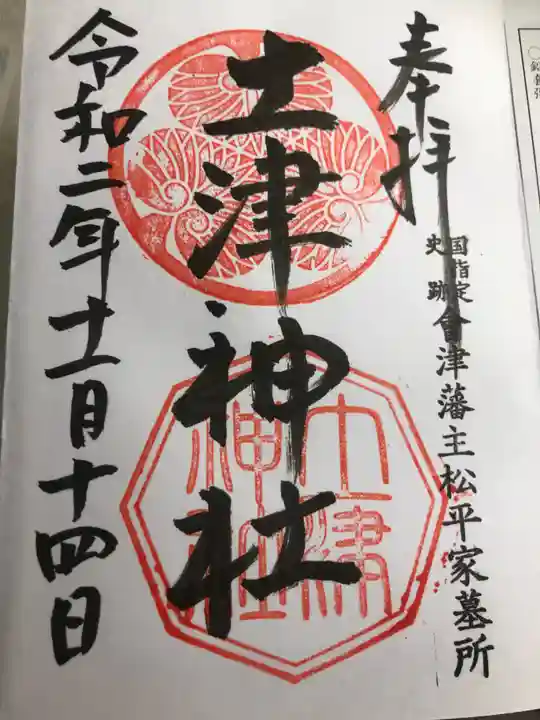 奉拝
国指定
史跡
會津藩主松平家墓所
土津神社
土津
神社
令和二年十一月十四日